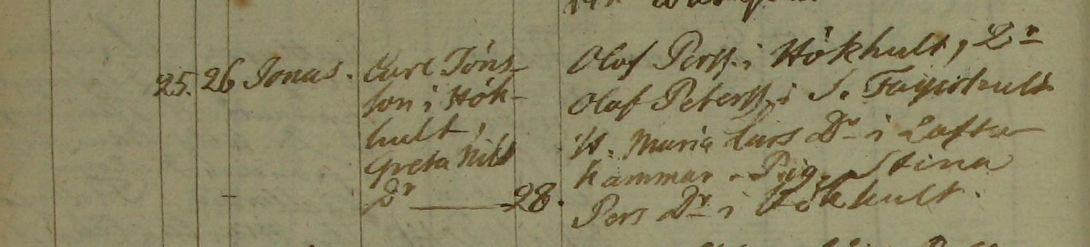 25. 26 Jonas. Carl Jöns-
son i Hök-
hult,
Greta Nils
Dr 28.
Olof Perss. i Hökhult, Dr
Olof Peterss. i S. Fagerhult
H. Maria Lars Dr i Lofta
hammar. Pig. Stina
Pers Dr i Hökhult.